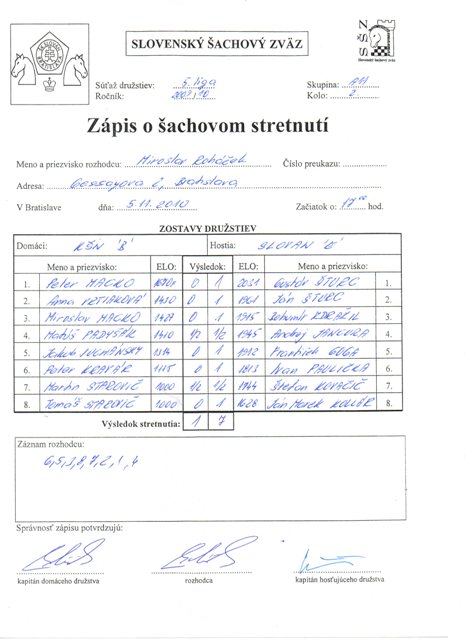 SLOVENSKÝ ŠACHOVÝ ZVÄZ
SŠZ
Slovenský šachový zväz
Súťaž družstiev: 5. liga Skupina: A11
Ročník: 2009/10 Kolo: 2
Zápis o šachovom stretnutí
Meno a priezvisko rozhodcu: Miroslav Číslo preukazu:
Adresa: 2, Bratislava
V Bratislave dňa: 5.11.2010 Začiatok o: 17 00 hod.
ZOSTAVY DRUŽSTIEV
Domáci: KŠN 'B' Hostia: SLOVAN
Meno a priezvisko: ELO: Výsledok: ELO: Meno a priezvisko:
1. Peter MACKO 0 1 2031 Gustáv ŠTURC 1.
2. Anna 1430 0 1 1961 Ján ŠTURC 2.
3. Miroslav MACKO 1427 0 1 1915 Bohumír 3.
4. Matúš 1410 1/2 1/2 1945 Andrej JANČURA 4.
5. Jakub 1314 0 1 1912 František GUGA 5.
6. Peter KRAVÁR 1115 0 1 1813 Ivan PAULIČKA 6.
7. Martin STAROVIČ 1000 1/2 1/2 1744 Štefan KOVAČIČ 7.
8. Tomáš STAROVIČ 1000 0 1 1628 Ján Marek KOLLÁR 8.
Výsledok stretnutia: 1 7
Záznam rozhodcu:
6,5,3,8,7,2,1,4
Správnosť zápisu potvrdzujú:
kapitán domáceho družstva rozhodca kapitán hosťujúceho družstva